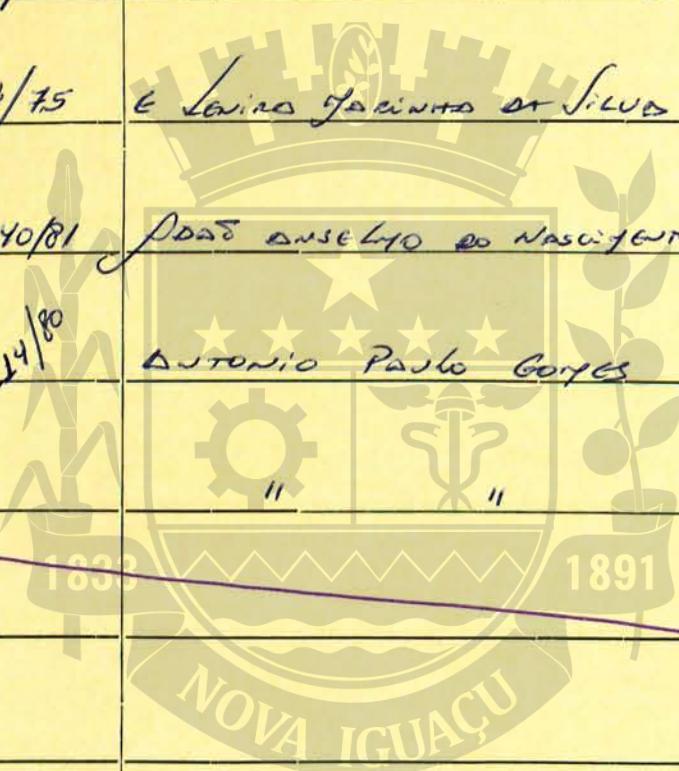 /75 E Leniro Marinho da Silva
40/81 João Anselmo do Nasciment
14/80 Antonio Paulo Gomes
" "
1833 1891
NOVA IGUAÇU